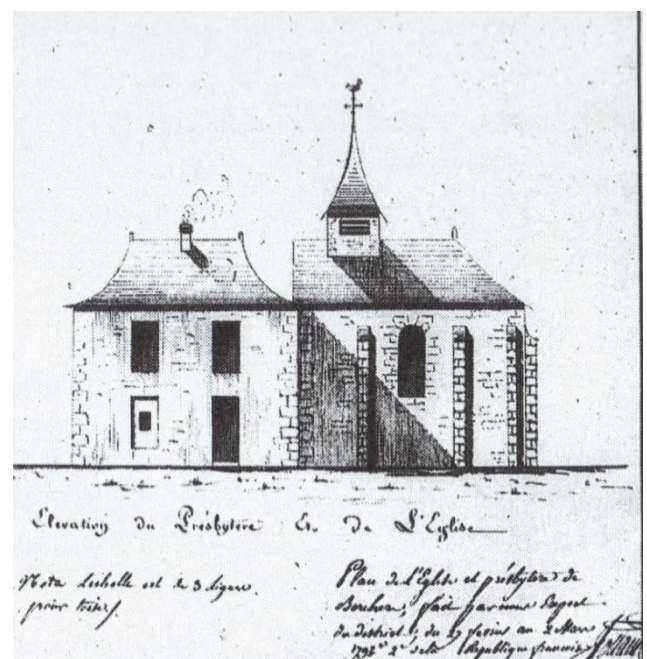 Elevation du Présbytère Et de L'Eglise
Nota Lechelle est de 3 lignes
pour toise
Plan de L'Eglise et présbytère de
fait par nous Expert
du district, du 27 au 2 Mars
2e de la République francaise